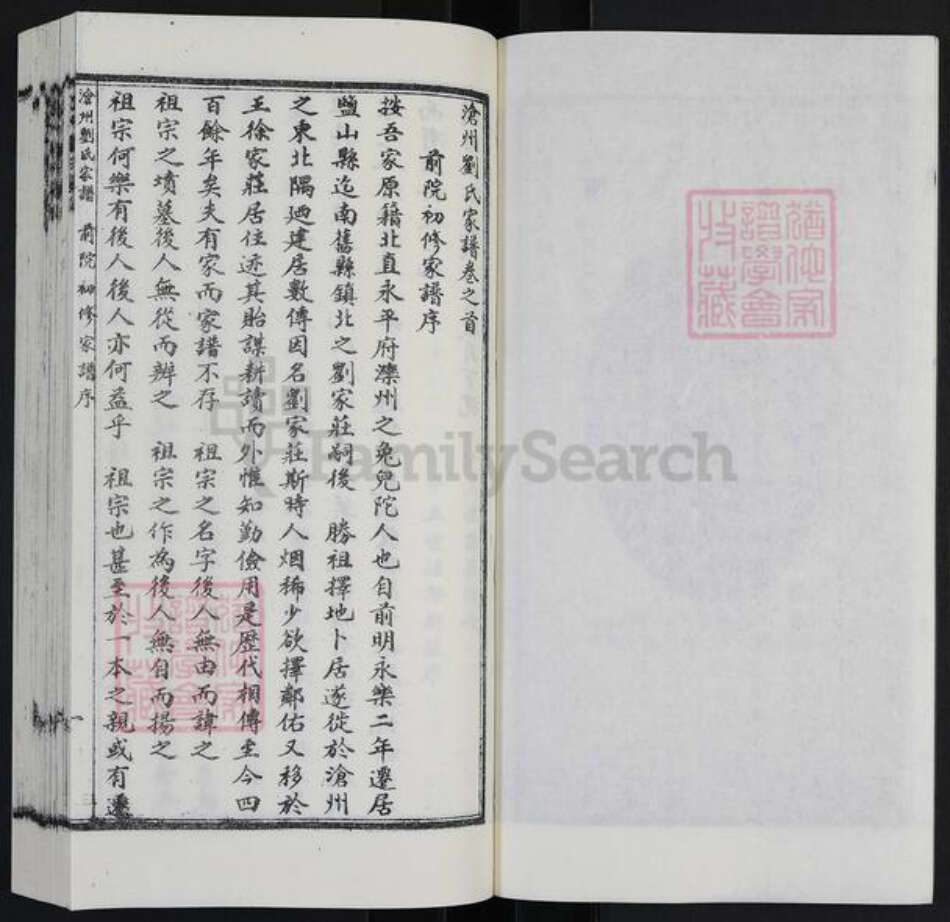 滄州劉氏家譜卷之首
前院初修家譜序
按吾家原籍北直永平府灤州之兔兒陀人也自前明永樂二年遷居
鹽山縣迄南舊縣鎮北之劉家莊嗣後　勝祖擇地卜居遂徙於滄州
之東北隅廼建居數傳因名劉家莊斯時人烟稀少欲擇鄰佑又移於
王徐家莊居住迹其貽謀耕讀而外惟知勤儉用是歷代相傳至今四
百餘年矣夫有家而家譜不存　祖宗之名字後人無由而諱之
祖宗之墳墓後人無從而辨之　祖宗之作為後人無自而揚之
祖宗何樂有後人後人亦何益乎　祖宗也甚至於一本之親或有
滄州劉氏家譜　前院初修家譜序　一
FamilySearch